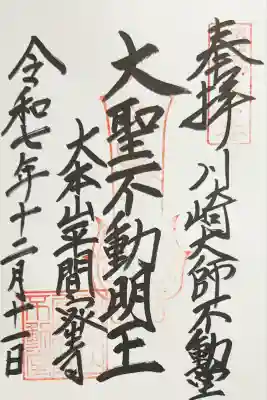 奉拝
川崎大師不動堂
大聖不動明王
大本山平間寺
令和七年十二月廿一日